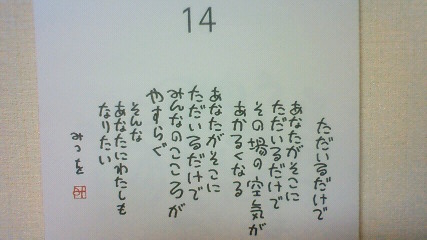 14
ただいるだけで
あなたがそこに
ただいるだけで
その場の空気が
あかるくなる
あなたがそこに
ただいるだけで
みんなのこころが
やすらぐ
そんな
あなたにわたしも
なりたい
みつを